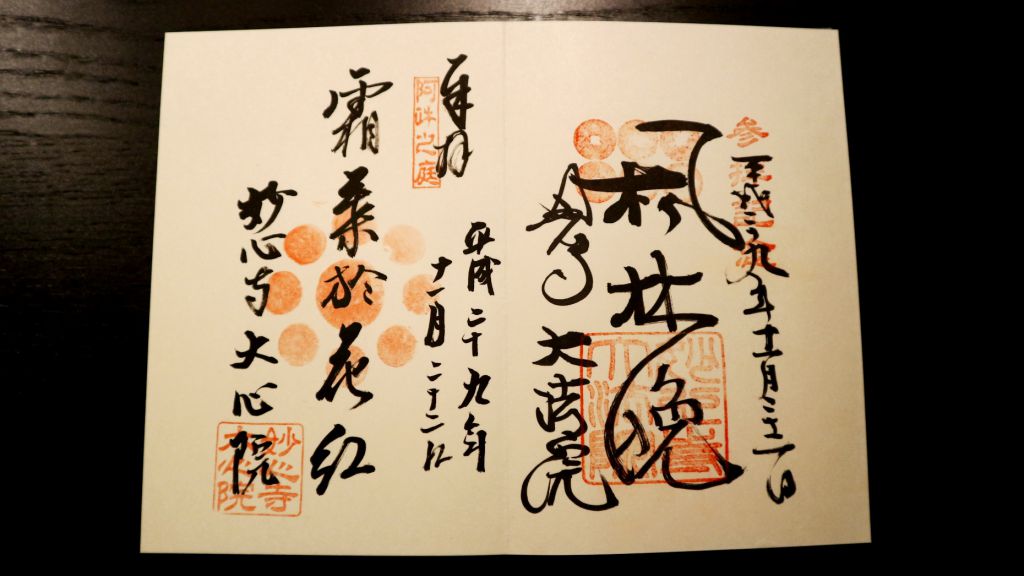 平成二十九年十一月二十二日
楓林晩
妙心寺 大法院
奉拝
阿吽之庭
平成二十九年
十一月二十二日
霜葉於花紅
妙心寺 大心院
妙心寺
大心院